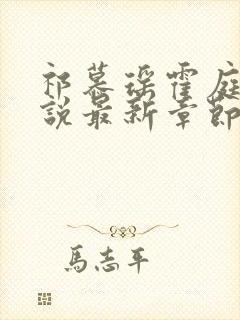 祁慕瑶霍庭
說最新章節
馬志平